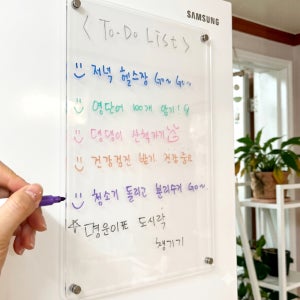 SAMSUNG
< To-Do List >
저녁 헬스장 Go~ Go~
영단어 100개 암기!
댕댕이 산책가기
건강검진 받기 건강 중요
청소기 돌리고 분리수거 Go~
도시락
챙기기